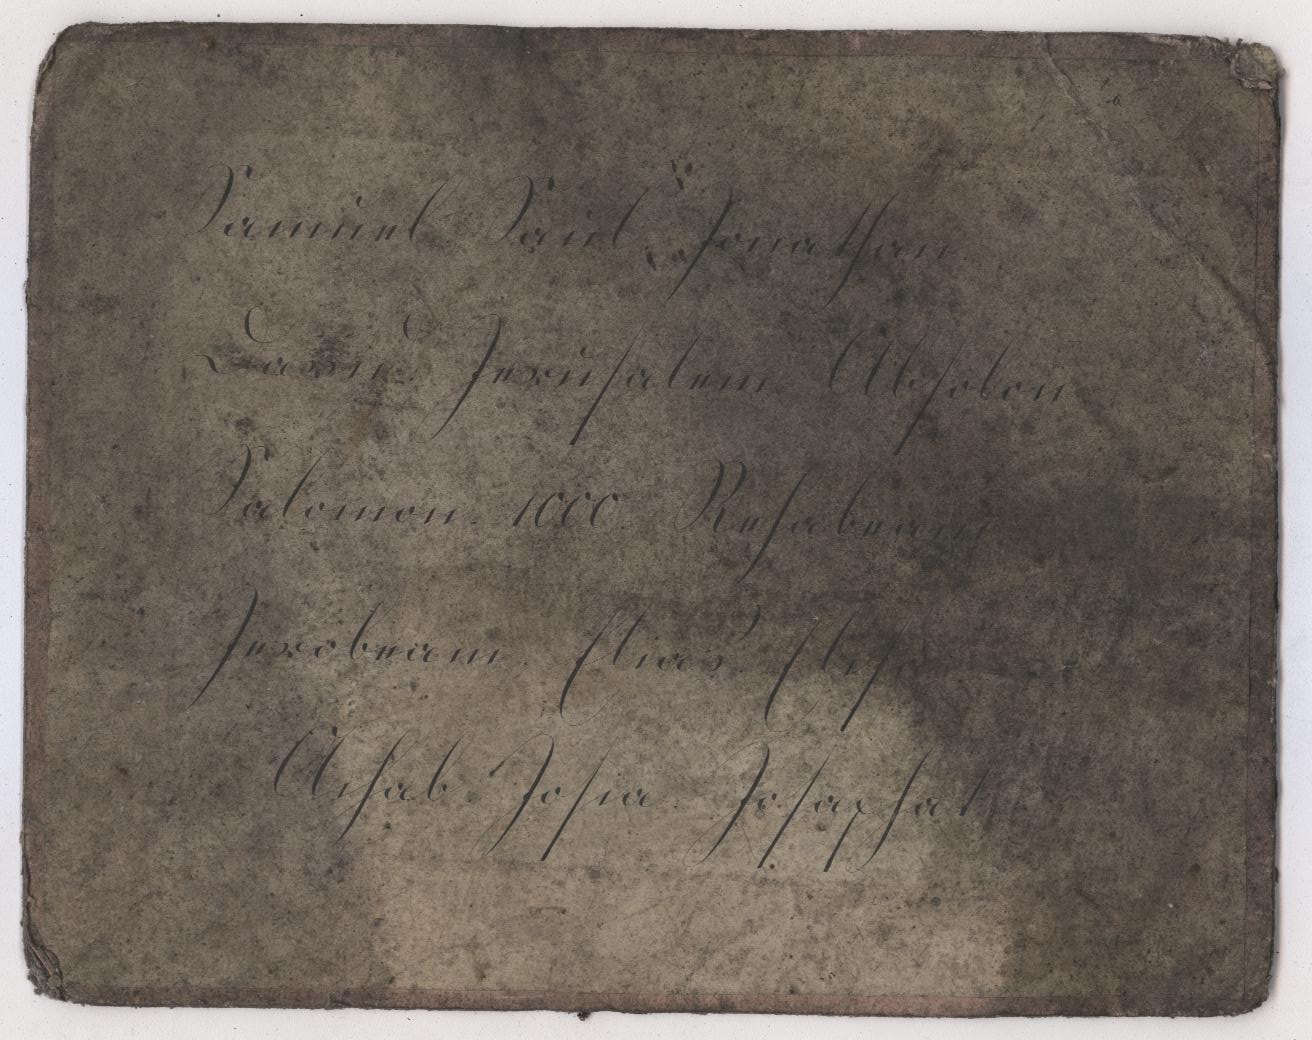 Samuel Saul Jonathan
David. Jerusalem Absolon
Salomon. 1000. Rehabeam
Jerobeam. Elias.
Ahab. Josia. Josaphat